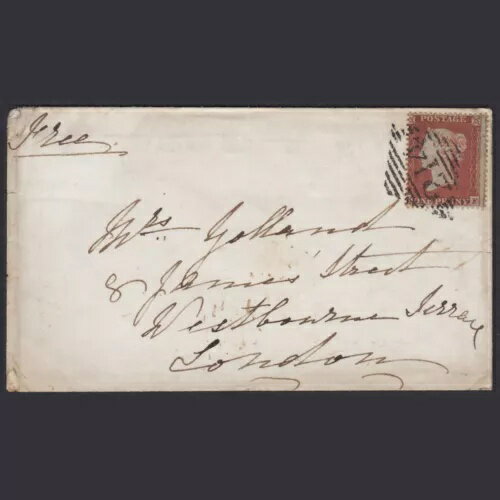 POSTAGE
Free
ONE PENNY
Mrs Yolland
8 James Street
Westbourne Terrace
London